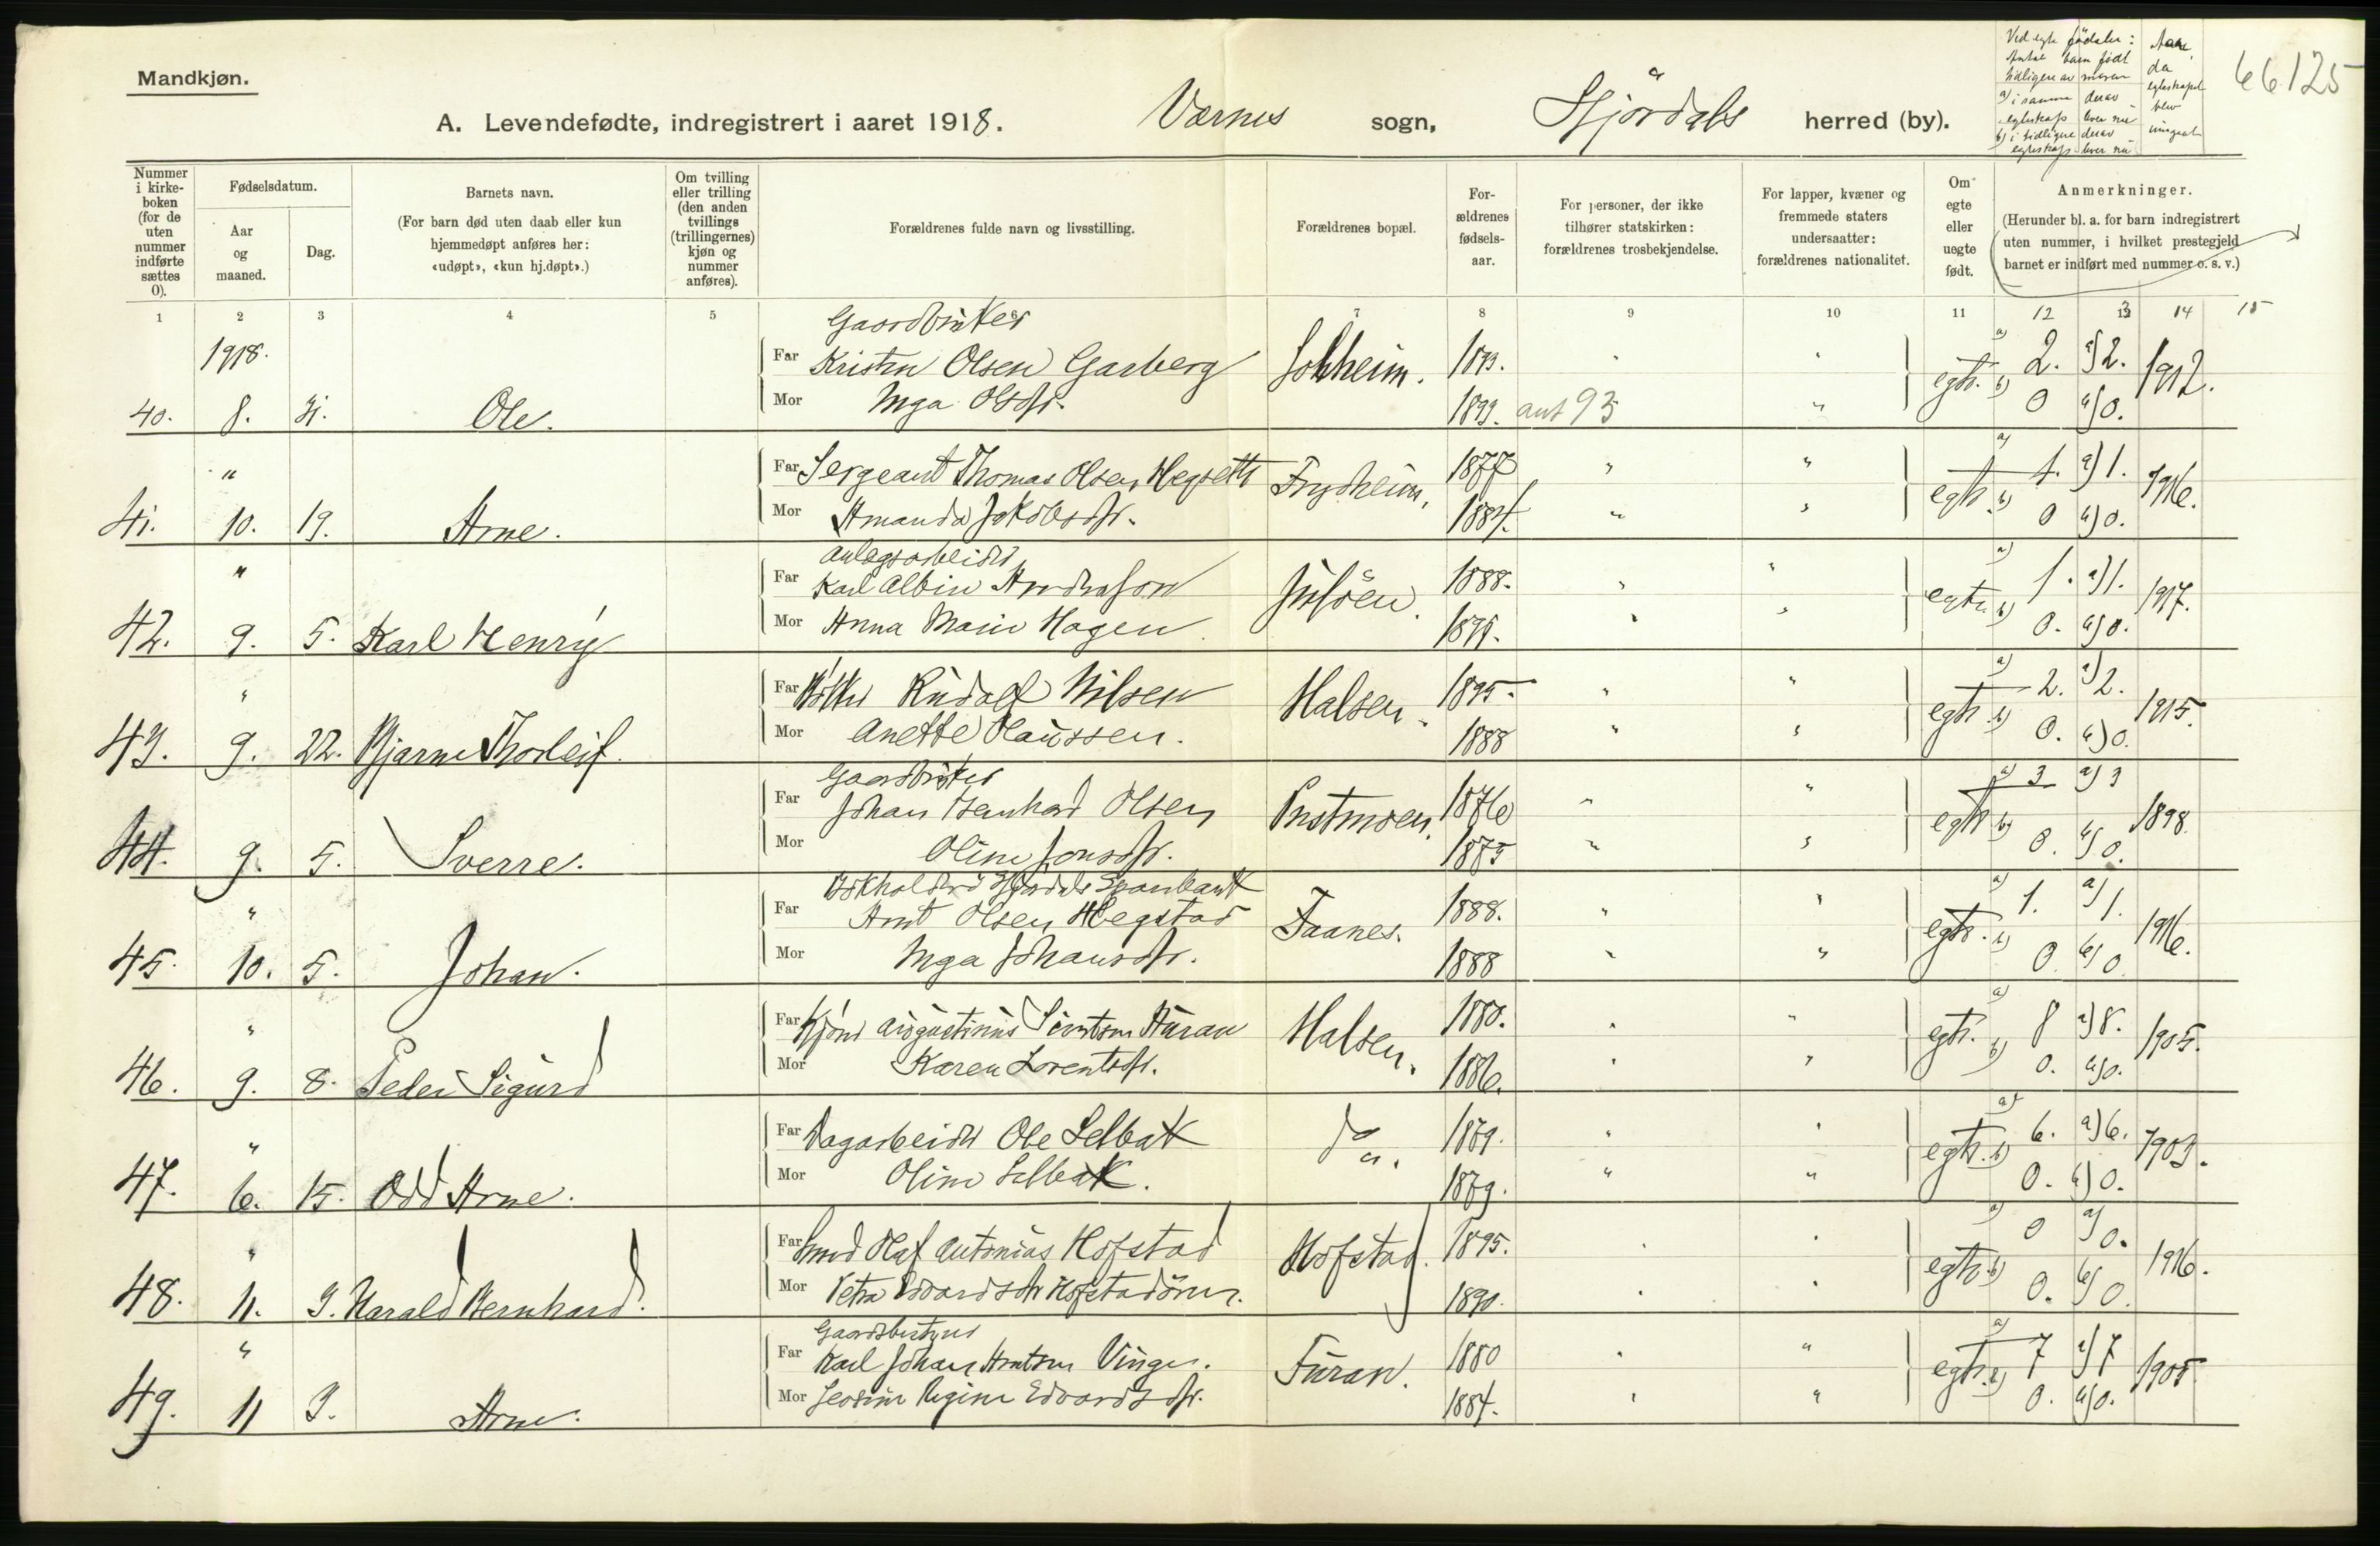 Mandkjøn.
A. Levendefødte, indregistrert i aaret 1918. Værnes sogn, Stjördals herred (by).
Ved egte fødsler: Antal barn født tidligere av moren
a) i samme egteskap derav lever nu
b) i tidligere egteskap derav lever nu
Aar, da egteskapet blev inngaat
66125
Nummer i kirkeboken (for de uten nummer indførte sættes 0).
Fødselsdatum.
Aar og maaned.
Dag.
Barnets navn.
(For barn død uten daab eller kun hjemmedøpt anføres her: «udøpt», «kun hj.døpt».)
Om tvilling eller trilling (den anden tvillings (trillingernes) kjøn og nummer anføres).
Forældrenes fulde navn og livsstilling.
Forældrenes bopæl.
Forældrenes fødselsaar.
For personer, der ikke tilhører statskirken: forældrenes trosbekjendelse.
For lapper, kvæner og fremmede staters undersaatter: forældrenes nationalitet.
Om egte eller uegte født.
Anmerkninger.
(Herunder bl. a. for barn indregistrert uten nummer, i hvilket prestegjeld barnet er indført med nummer o. s. v.)
1 2 3 4 5 7 8 9 10 11 12 13 14 15
1918.
Gaardbruker
Far Kristen Olsen Garberg Solheim. 1893. " " egte. a) 2. a) 2. 1912.
40. 8. 31. Ole. Mor Inga Olsdtr. 1899. ant 93 " b) 0 b) 0.
" Far Sergeant Thomas Olsen Hegseth Frydheim, 1877 " " egte a) 1. a) 1. 1916.
41. 10. 19. Arne. Mor Amanda Jakobsdtr. 1884. " " b) 0 b) 0.
Anlægsarbeider
" Far Karl Albin Andreason 1888. " " egte a) 1. a) 1. 1917.
42. 9. 5. Karl Henry Mor Anna Marie Hagen. " " b) 0. b) 0.
" Far Rudolf Nilsen Halsen. 1895. " " egte a) 2. a) 2. 1915.
43. 9. 22. Bjarne Thorleif. Mor Anette Claussen. 1888 " " b) 0. b) 0.
Gaardbruker
Far Johan Bernhard Olsen 1876 " " egte a) 3 a) 3 1898.
44. 9. 5. Sverre. Mor Oline Jonsdtr. 1875 " " b) 0. b) 0.
Bokholder i Stjørdals Sparebank
" Far Arnt Olsen Hegstad Faanes. 1888. " " egte. a) 1. a) 1. 1916.
45. 10. 5. Johan. Mor Inga Johansdtr. 1888 " " b) 0. b) 0
" Far Augustinus Auran Halsen. 1880. " " egte. a) 8 a) 8. 1905.
46. 9. 8. Peder Sigurd Mor Karen Lorentsdtr. 1886. " " b) 0. b) 0.
" Far Dagarbeider Ole Selbak do. 1879. " " egte. a) 6. a) 6. 1903.
47. 6. 15. Odd Arne. Mor Oline Selbak. 1879. " " b) 0. b) 0.
" Far Smed Olaf Antonius Hofstad Hofstad. 1895. " " egte a) 0 a) 0. 1916.
48. 11. 3. Harald Bernhard. Mor Petra Edvardsdtr Hofstadören. 1890. " " b) 0. b) 0.
Gaardsbestyrer
" Far Karl Johan Arntsen Vinge. Furan. 1880 " " egte. a) 7 a) 7 1905
49. 11 3. Arne. Mor Regine Edvardsdtr. 1884. " " b) 0. b) 0.